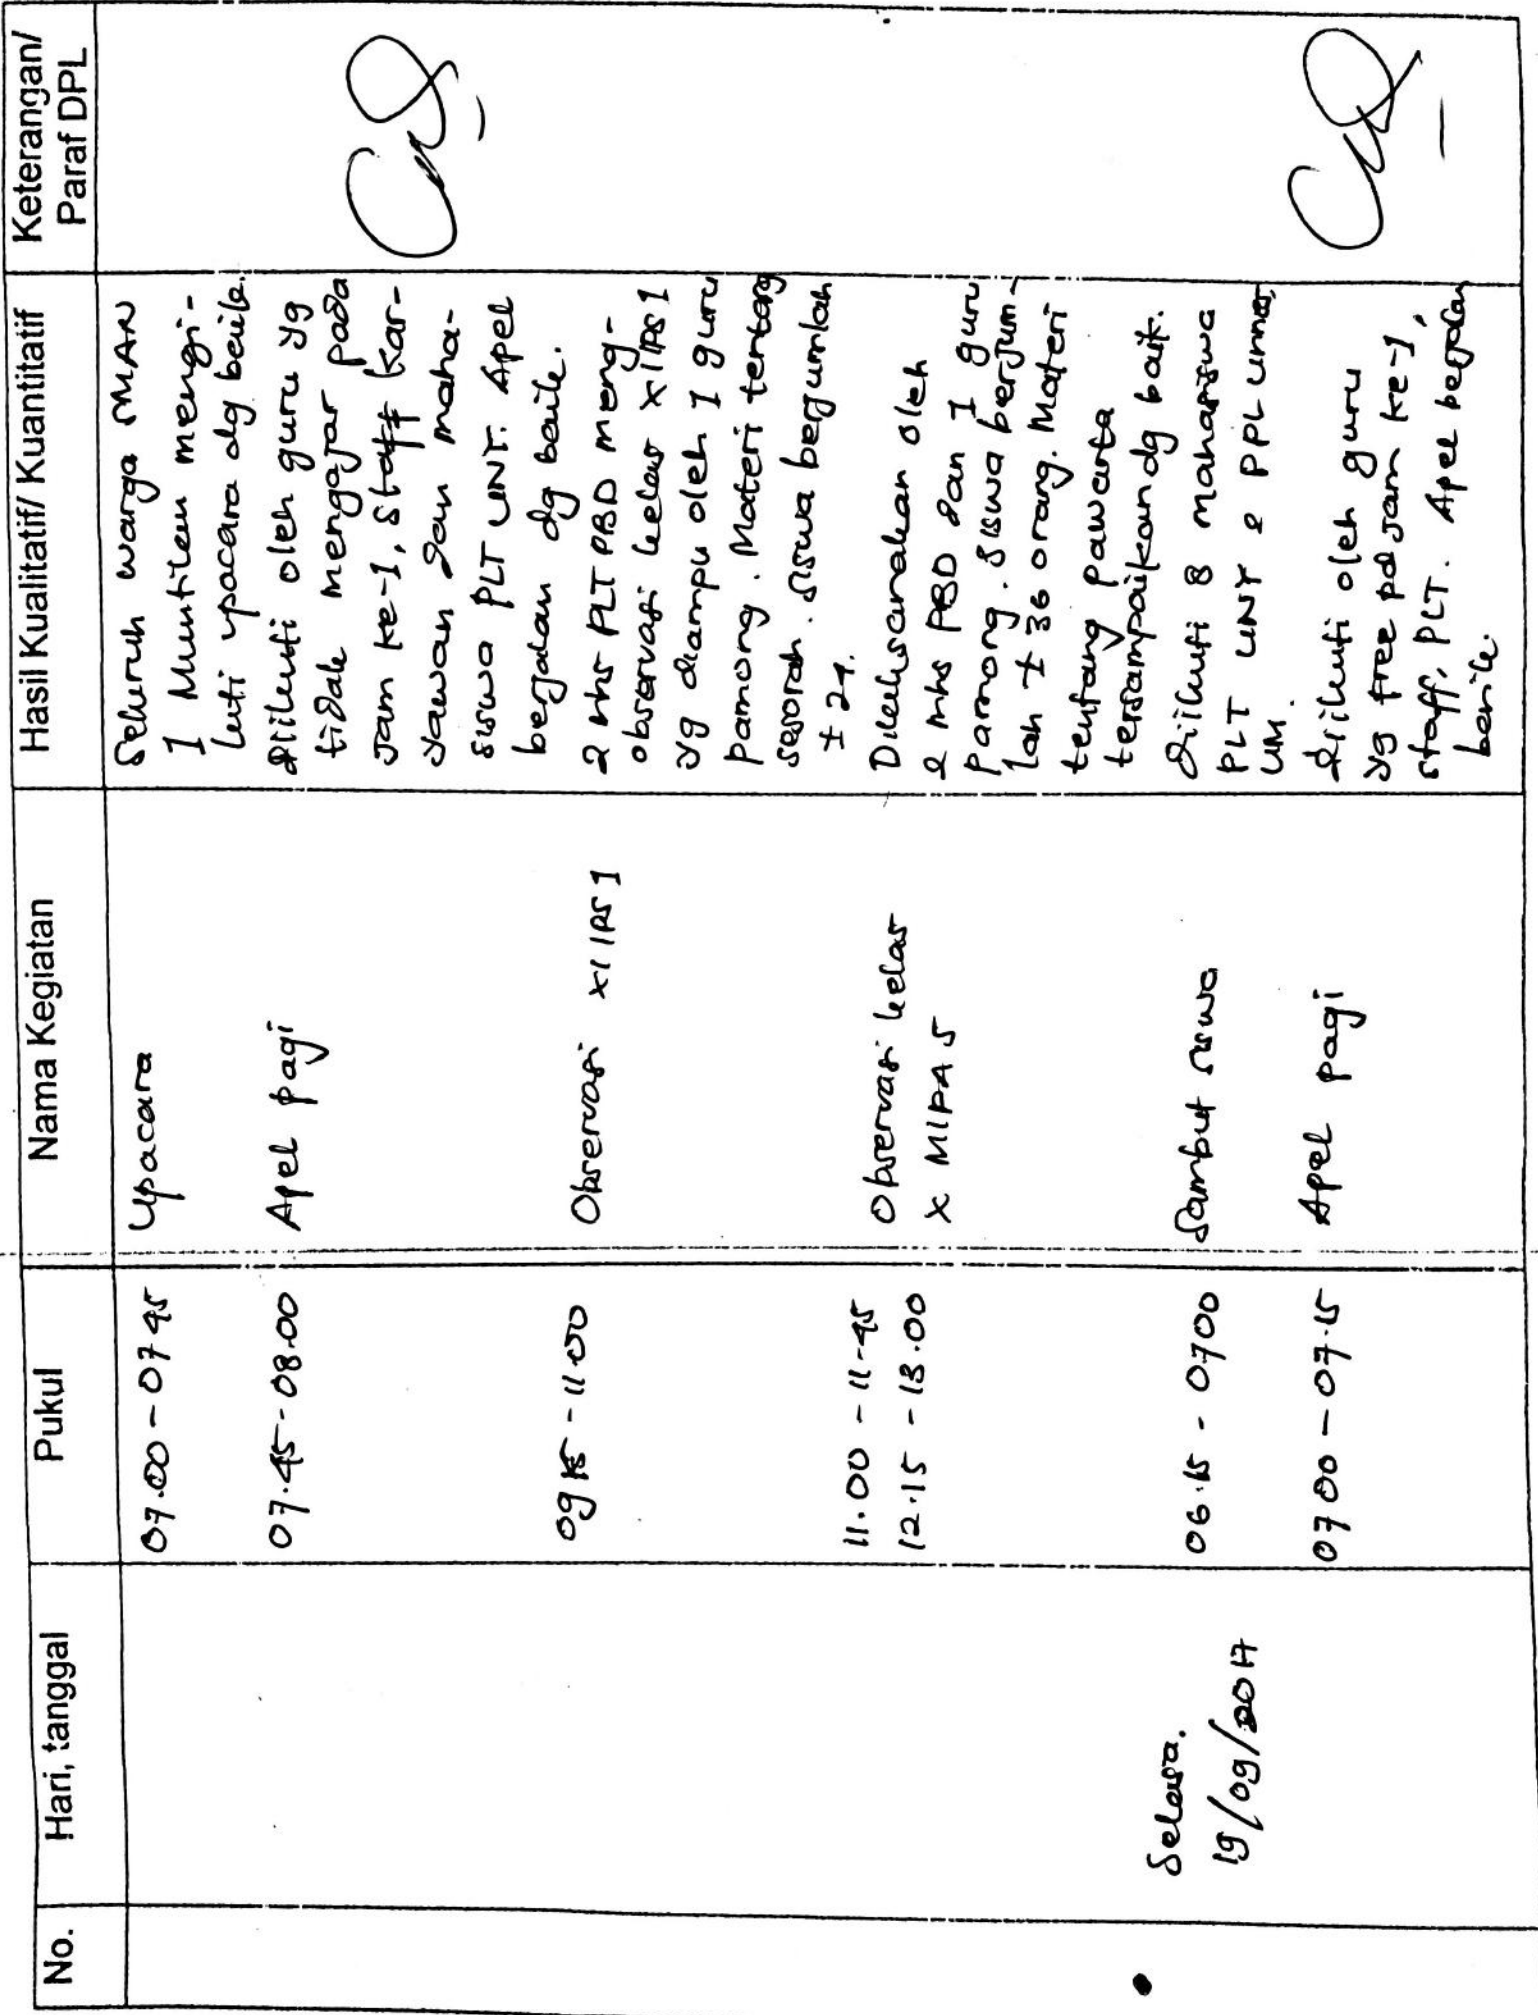 No.
Hari, tanggal
Pukul
Nama Kegiatan
Hasil Kualitatif/ Kuantitatif
Keterangan/
Paraf DPL
07.00 - 07 45
Upacara
Seluruh warga MAN
1 Muntilan mengi-
kuti upacara dg baik.
07.45 - 08.00
Apel pagi
diikuti oleh guru yg
tidak mengajar pada
jam ke-1, staff kar-
yawan dan maha-
siswa PLT UNY. Apel
berjalan dg baik.
09 15 - 11.00
Observasi XI IPS 1
2 mhs PLT PBD meng-
observasi kelas XI IPS 1
yg diampu oleh 1 guru
pamong. Materi tentang
sesorah. siswa berjumlah
± 24.
11.00 - 11-45
12.15 - 13.00
Observasi kelas
X MIPA 5
Dilaksanakan oleh
2 mhs PBD dan 1 guru
pamong. siswa berjum-
lah ± 36 orang. Materi
tentang pawarta
tersampaikan dg baik.
Selasa.
19/09/2017
06.15 - 0700
Sambut siswa
diikuti 8 mahasiswa
PLT UNY & PPL
UM.
07 00 - 07.15
Apel pagi
diikuti oleh guru
yg free pd jam ke-1,
staff, PLT. Apel berjalan
baik.